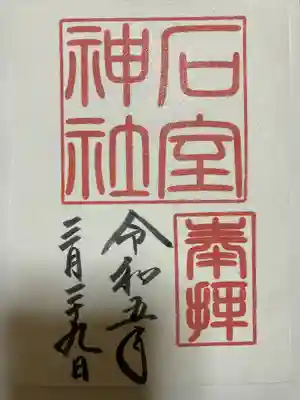 石室
神社
奉拝
令和五年
三月二十九日